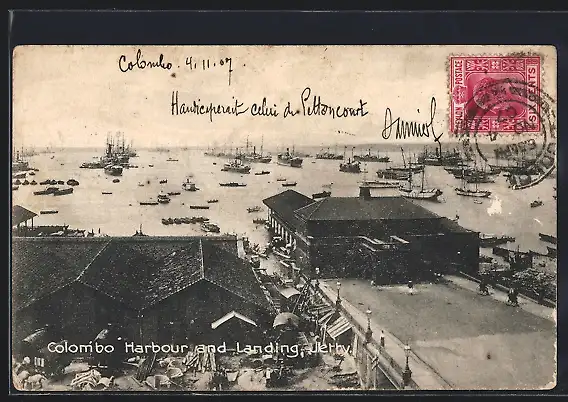 Colombo. 4.11.07
Handicaperait celui du Pettoncourt
CEYLON POSTAGE
SIX CENTS
Colombo Harbour and Landing, Jetty.